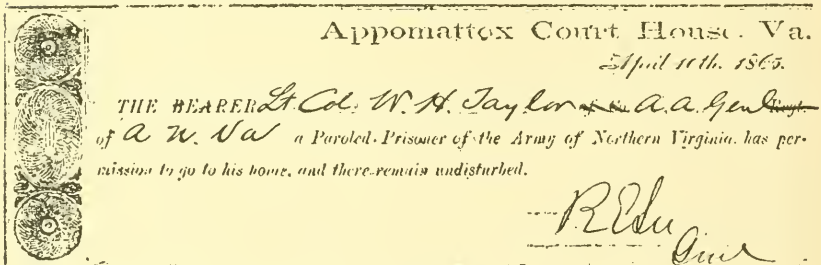 Appomattox Court House, Va.
April 10th, 1865.
THE BEARER Lt. Col. W. H. Taylor A. A. Genl
of A N. Va a Paroled Prisoner of the Army of Northern Virginia, has per-
mission to go to his home, and there remain undisturbed.
R E Lee
Genl